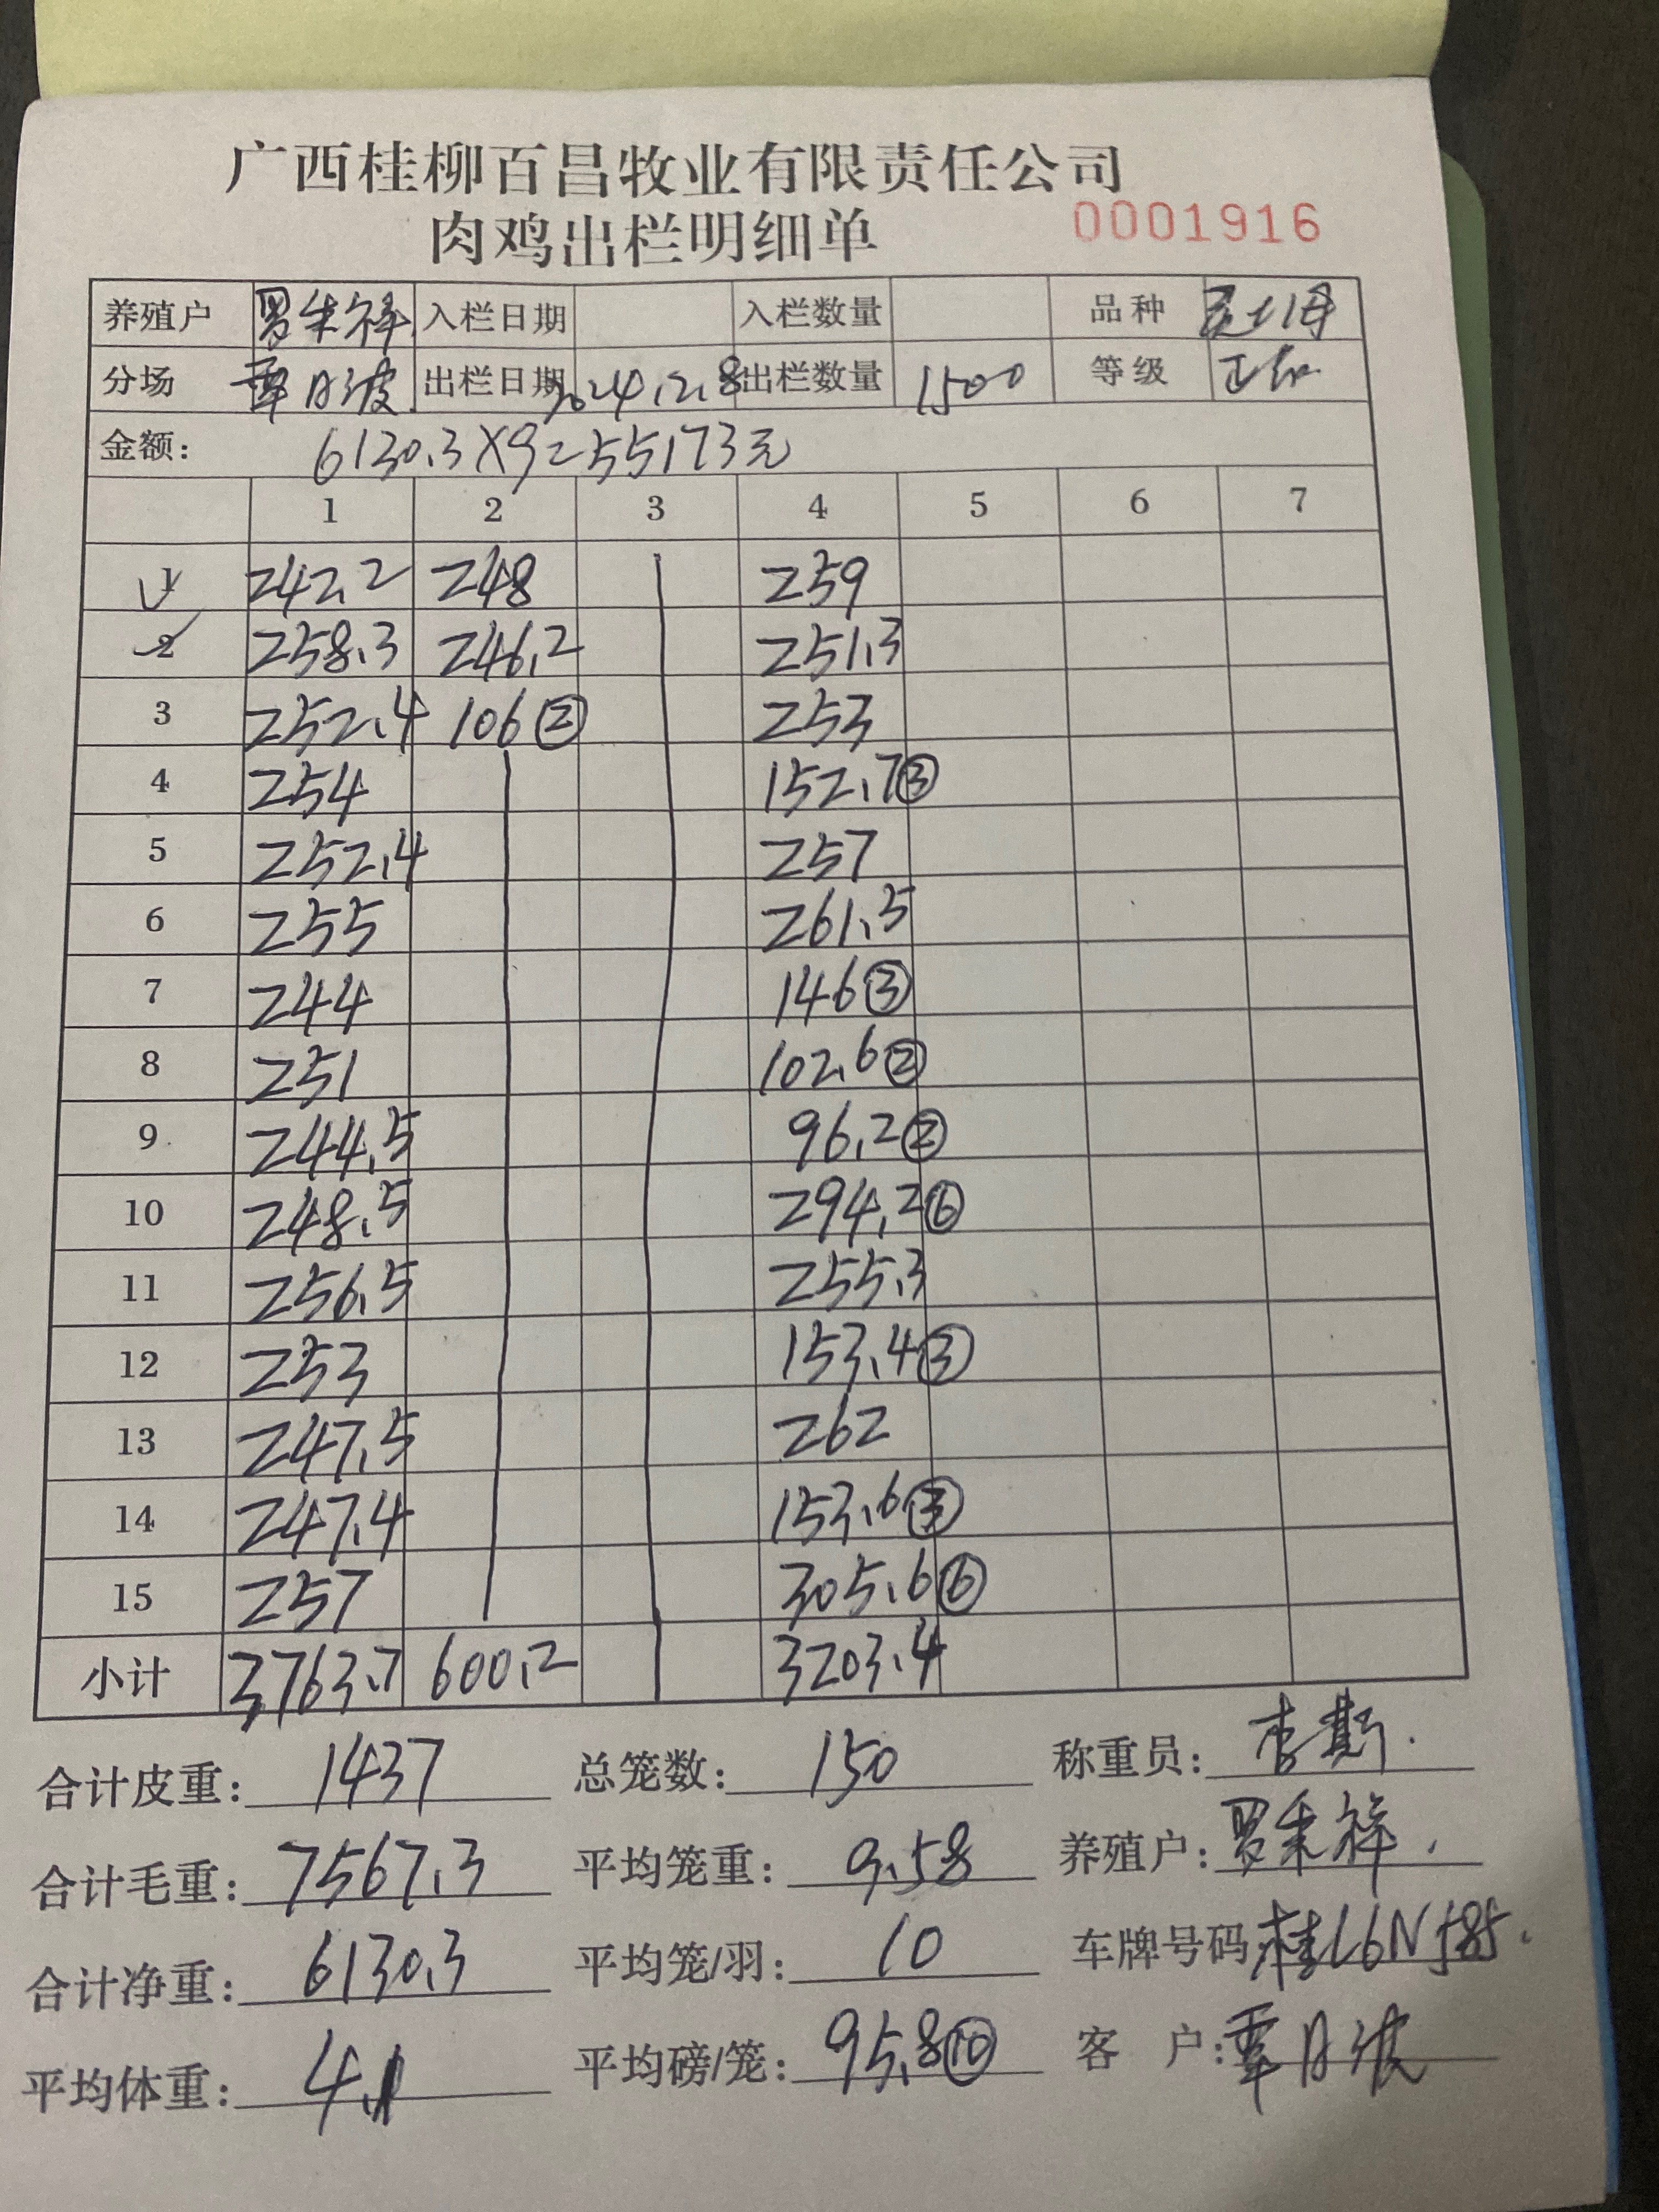 广西桂柳百昌牧业有限责任公司
肉鸡出栏明细单 0001916
养殖户 罗朱祥 入栏日期 入栏数量 品种
分场 覃月波 出栏日期 2024.2.8 出栏数量 1500 等级 正品
金额: 6130.3×9=55173元
1 2 3 4 5 6 7
1 242.2 248 259
2 258.3 246.2 251.3
3 252.4 106② 253
4 254 152.7③
5 252.4 257
6 255 261.5
7 244 146③
8 251 102.6②
9 244.5 96.2②
10 248.5 294.2⑥
11 256.5 255.3
12 253 153.4③
13 247.5 262
14 247.4 153.6③
15 257 305.6⑥
小计 3763.7 600.2 3203.4
合计皮重: 1437 总笼数: 150 称重员: 李斯
合计毛重: 7567.3 平均笼重: 9.58 养殖户: 罗朱祥
合计净重: 6130.3 平均笼/羽: 10 车牌号码:
平均体重: 4.1 平均磅/笼: 95.8⑩ 客 户: 覃月波